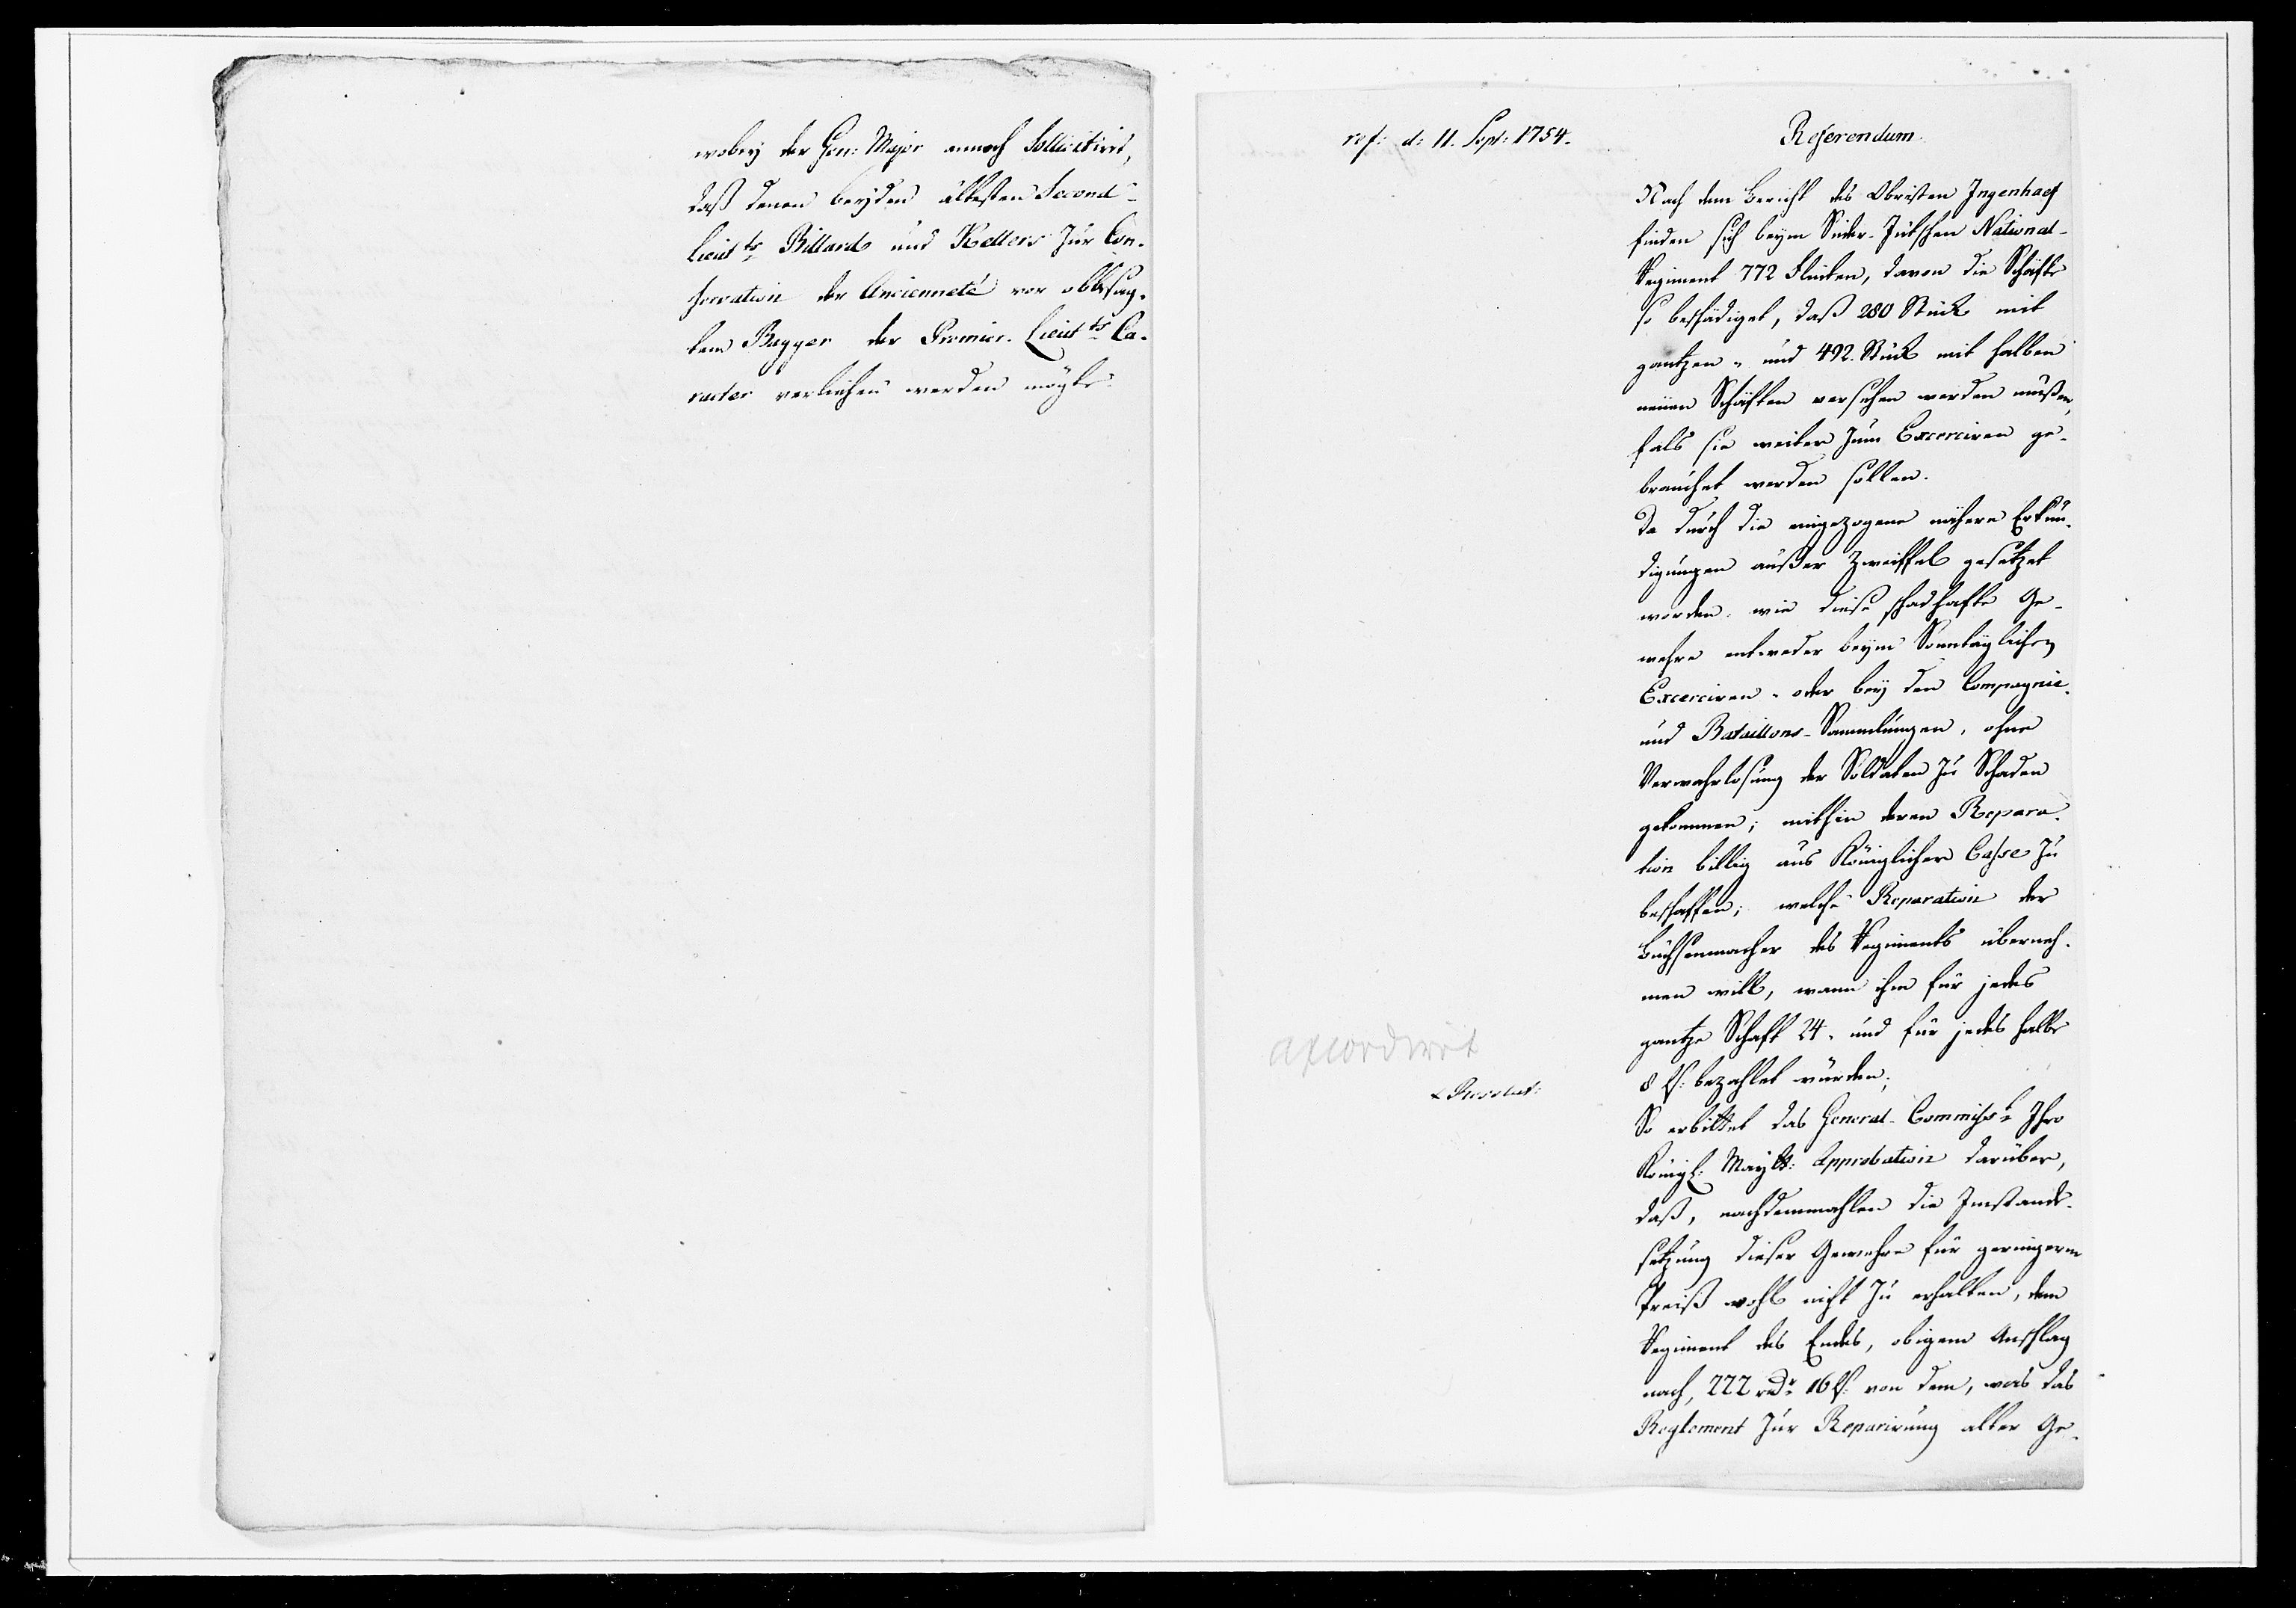 wobey der Gen: Major annoch sollicitiret,
daß denen beyden ältesten Second-
Lieutts Billards und Kellers zur Con-
servation der Ancienneté vor obbesag-
tem Bagger der Premier-Lieutts Ca-
racter verliehen werden mögte.
ref: d: 11. Sept: 1754.
Referendum
Nach dem Bericht des Obristen Ingenhaef
finden sich beym Süder-Jütschen National-
Regiment 772 Flinten, davon die Schäfte
so beschädiget, daß 280 Stück mit
gantzen - und 492. Stück mit halben
neüen Schäften versehen werden müßen,
fals sie weiter zum Excerciren ge-
brauchet werden sollen.
Da durch die eingezogene nähere Erkun-
digungen außer Zweiffel gesetzet
worden, wie diese schadhafte Ge-
wehre entweder beym Sonntäglichen
Excerciren - oder bey den Compagnie-
und Bataillons-Sammlungen, ohne
Verwahrlosung der Soldaten zu Schaden
gekommen; mithin deren Repara-
tion billig aus Königlicher Casse zu
beschaffen; welche Reparation der
Büchsenmacher des Regiments überneh-
men will, wann ihm für jedes
gantze Schaft 24 - und für jedes halbe
8 ßl: bezahlet würden;
axcordirt
x Resolut:
So erbittet das General-Commisst Ihro
Königl: Maytt: Approbation darüber,
daß, nachdemmahlen die Instand-
setzung dieser Gewehre für geringern
Preiß wohl nicht zu erhalten, dem
Regiment des Endes, obigem Anschlag
nach, 222 rdr 16 ßl: von dem, was das
Reglement zur Reparirung alter Ge-